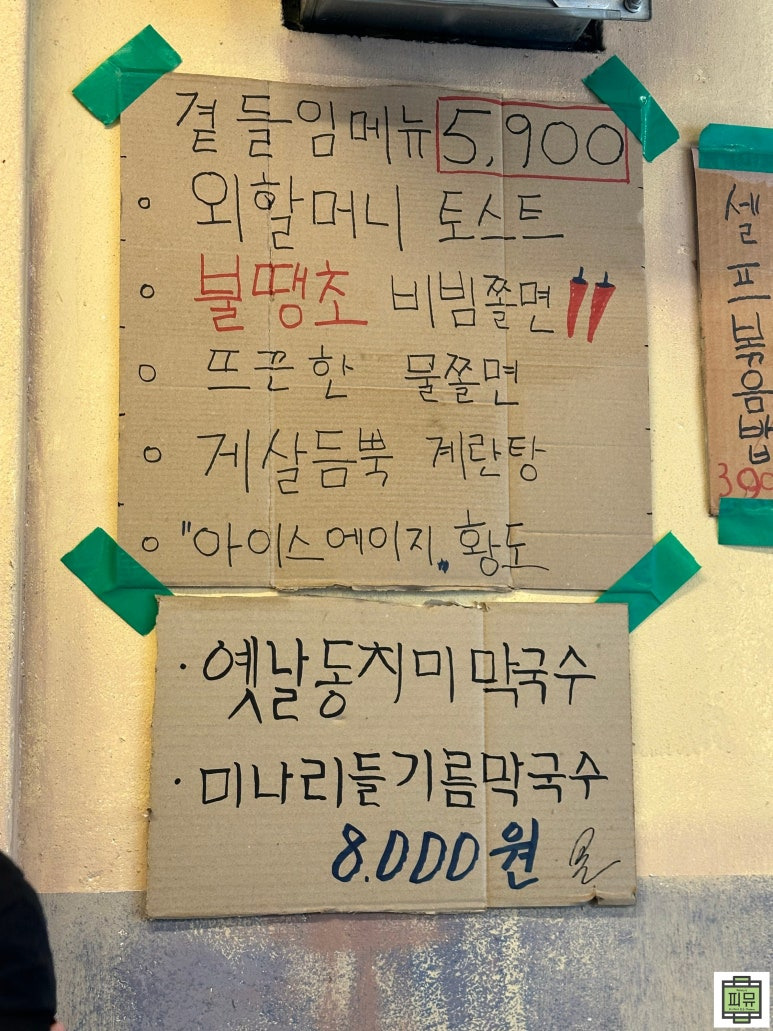 곁들임메뉴 5,900
외할머니 토스트
불땡초 비빔쫄면
뜨끈한 물쫄면
게살듬뿍 계란탕
"아이스에이지" 황도
· 옛날동치미막국수
· 미나리들기름막국수
8.000원
셀프볶음밥
피뮤